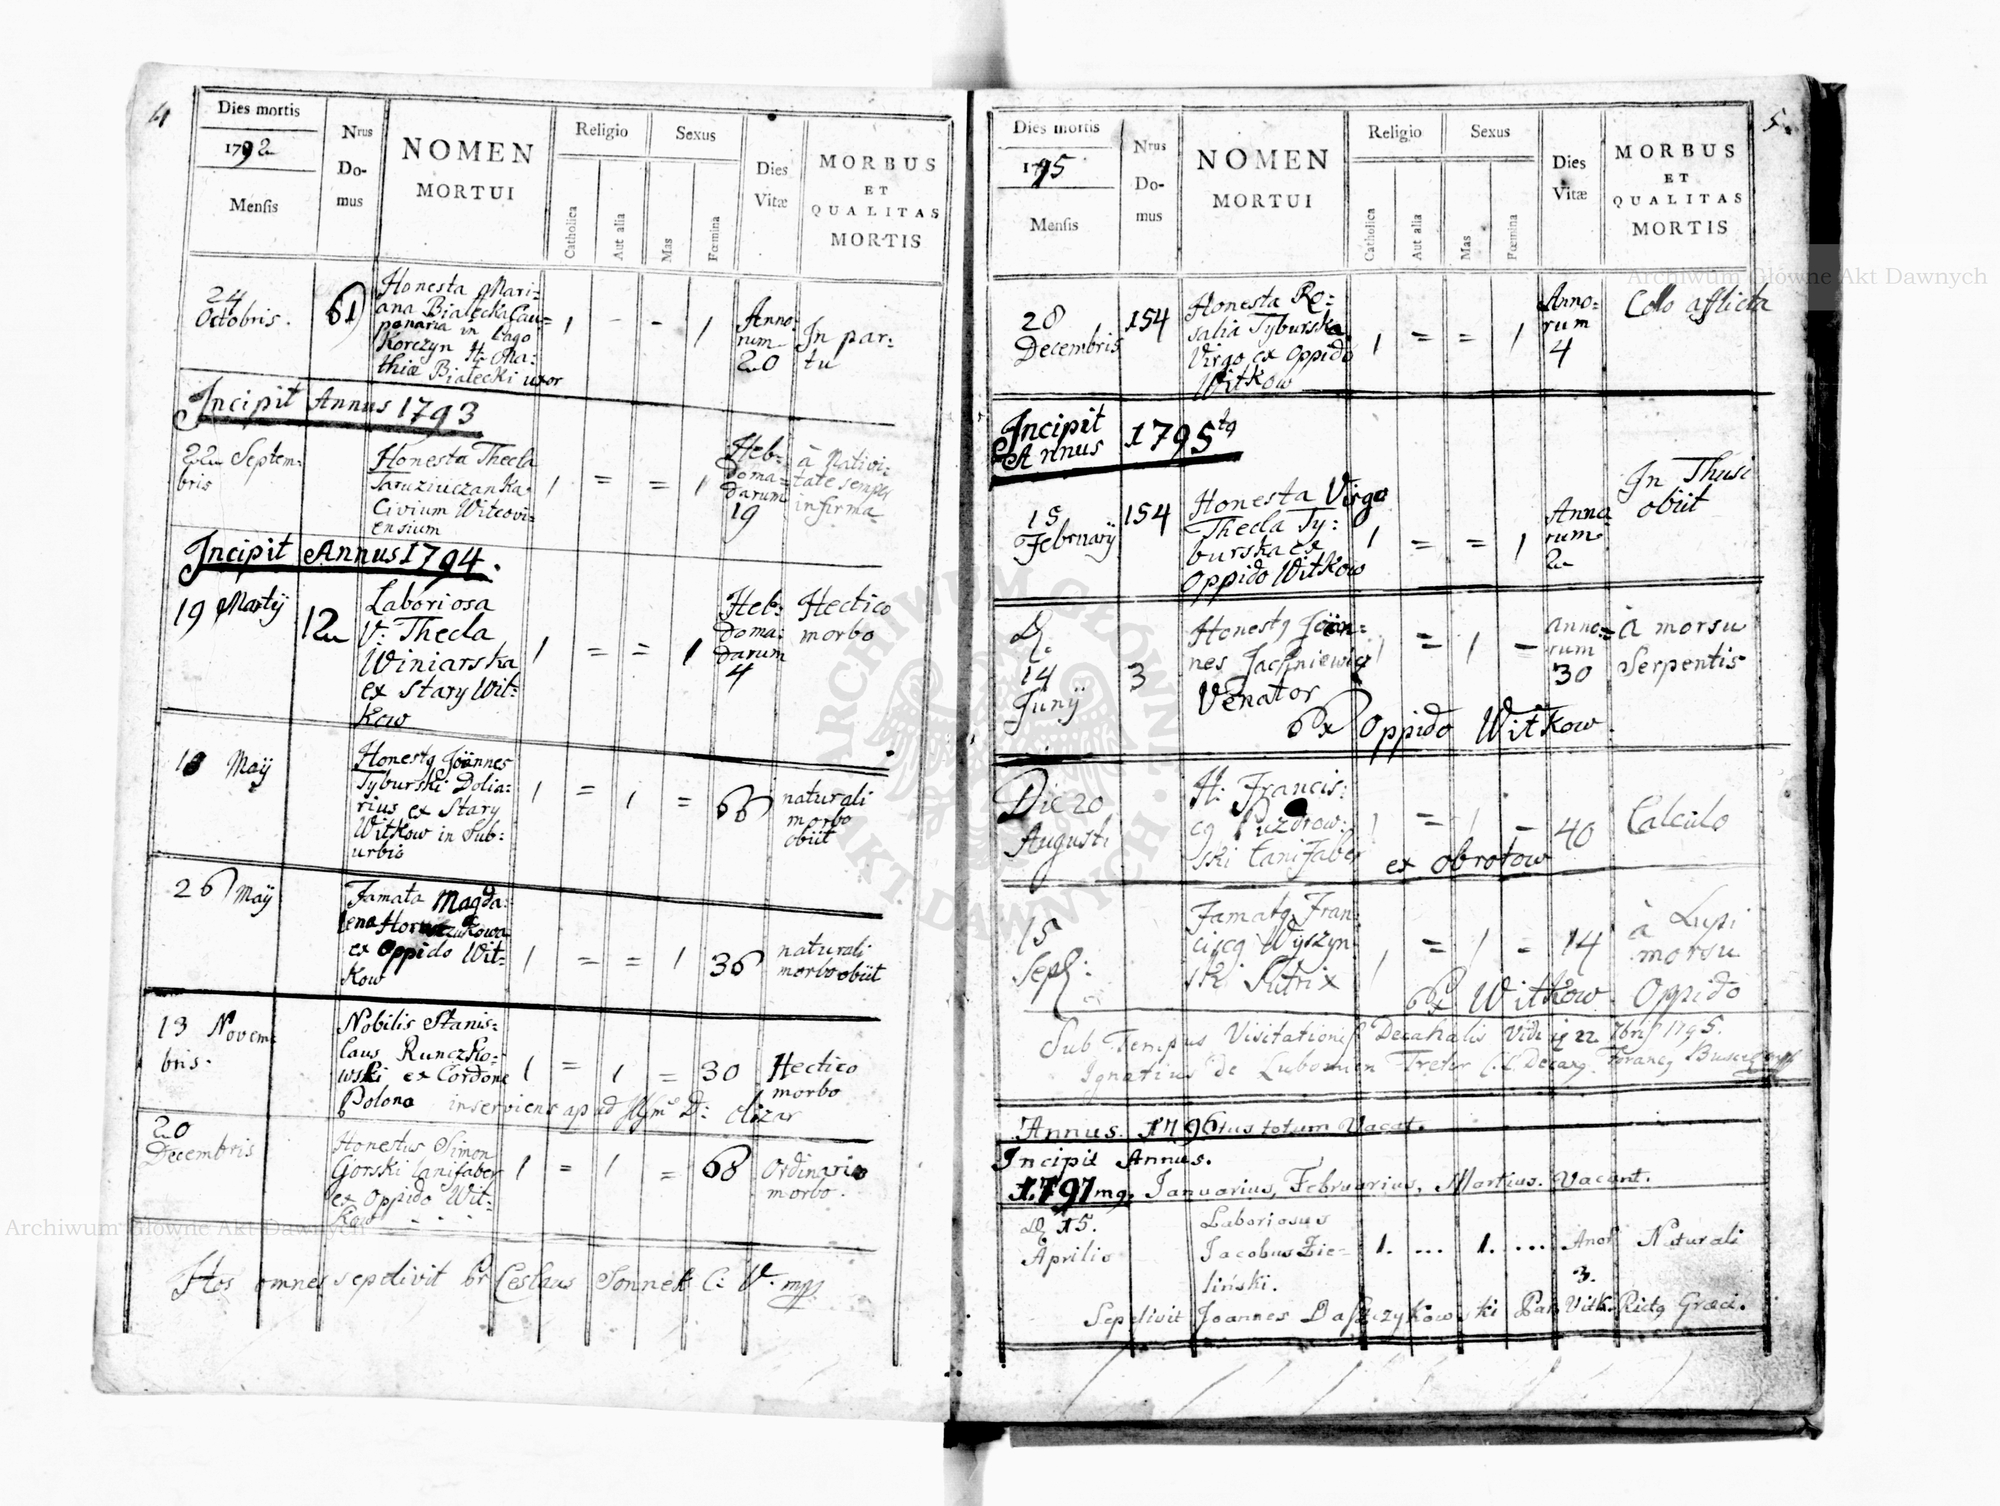 4
Dies mortis
1792
Mensis
Nrus
Do-
mus
NOMEN
MORTUI
Religio
Catholica
Aut alia
Sexus
Mas
Fœmina
Dies
Vitæ
MORBUS
ET
QUALITAS
MORTIS
24
Octobris.
61
Honesta Mari=
ana Białecka Cau=
ponaria in Pago
Korczyn H: Ma:
thiæ Białecki uxor
1 - - 1
Anno
rum
20
In par-
tu
Incipit Annus 1793
22 Septem-
bris
Honesta Thecla
Taruziuczanka
Civium Witcovi=
ensium
1 = = 1
Heb=
doma=
darum
19
à Nativi=
tate semper
infirma
Incipit Annus 1794.
19 Martij
12
Laboriosa
V: Thecla
Winiarska
ex Stary Wit:
Kow
1 = = 1
Heb:
doma:
darum
4
Hectico
morbo
18 Maij
Honestq Joannes
Tyburski Dolia:
rius ex Stary
Witkow in Sub:
urbio
1 = 1 =
66
naturali
morbo
obiit
26 Maij
Famata Magda:
lena
ex Oppido Wit=
Kow
1 = = 1
36
naturali
morbo obiit
13 Novem=
bris.
Nobilis Stanis=
laus Runczko=
wski ex Cordone
Polono inserviens apud D: Olizar
1 = 1 =
30
Hectico
morbo
20
Decembris
Honestus Simon
Gorski Lanifaber
ex Oppido Wit=
Kow - - -
1 = 1 =
68
Ordinario
morbo.
Hos omnes sepelivit Ceslaus Sonnek C: V. mpp.
5.
Dies mortis
1795
Mensis
Nrus
Do-
mus
NOMEN
MORTUI
Religio
Catholica
Aut alia
Sexus
Mas
Fœmina
Dies
Vitæ
MORBUS
ET
QUALITAS
MORTIS
28
Decembris
154
Honesta Ro:
salia Tyburska
Virgo ex Oppido
Witkow
1 = = 1
Anno=
rum
4
Collo afflicta
Incipit
Annus 1795tq
15
Februarij
154
Honesta Virgo
Thecla Ty:
burska ex
Oppido Witkow
1 = = 1
Anno
rum
2
In Thusi
obiit
D.
14
Junij
3
Honestq Joan=
nes Jachniewicz
Venator
Ex Oppido Witkow.
1 = 1 =
anno=
rum
30
à morsu
Serpentis
Die 20
Augusti
H: Francis:
cq Puzdrow:
ski Lanifaber
ex Obrotow
1 = 1 =
40
Calculo
15
Sept:
Famatq Fran
ciscq Wyszyn
ski Sutrix
1 = 1 =
14
à Lupi
morsu
Ex Witkow Oppido
Sub Tempus Visitationis Decanalis Vidi 22 7bris 1795.
Ignatius de Lubomien Treter
Annus. 1796tus totum Vacat.
Incipit Annus.
1797mq, Januarius, Februarius, Martius. Vacant.
D. 15.
Aprilis
Laboriosus
Jacobus Zie=
liński.
1. ... 1. ...
3.
Naturali
Sepelivit Joannes Daszczykowski Par: Vitk. Ritq Græci.
Archiwum Główne Akt Dawnych
Archiwum Główne Akt Dawnych
ARCHIWUM GŁÓWNE · AKT DAWNYCH ·